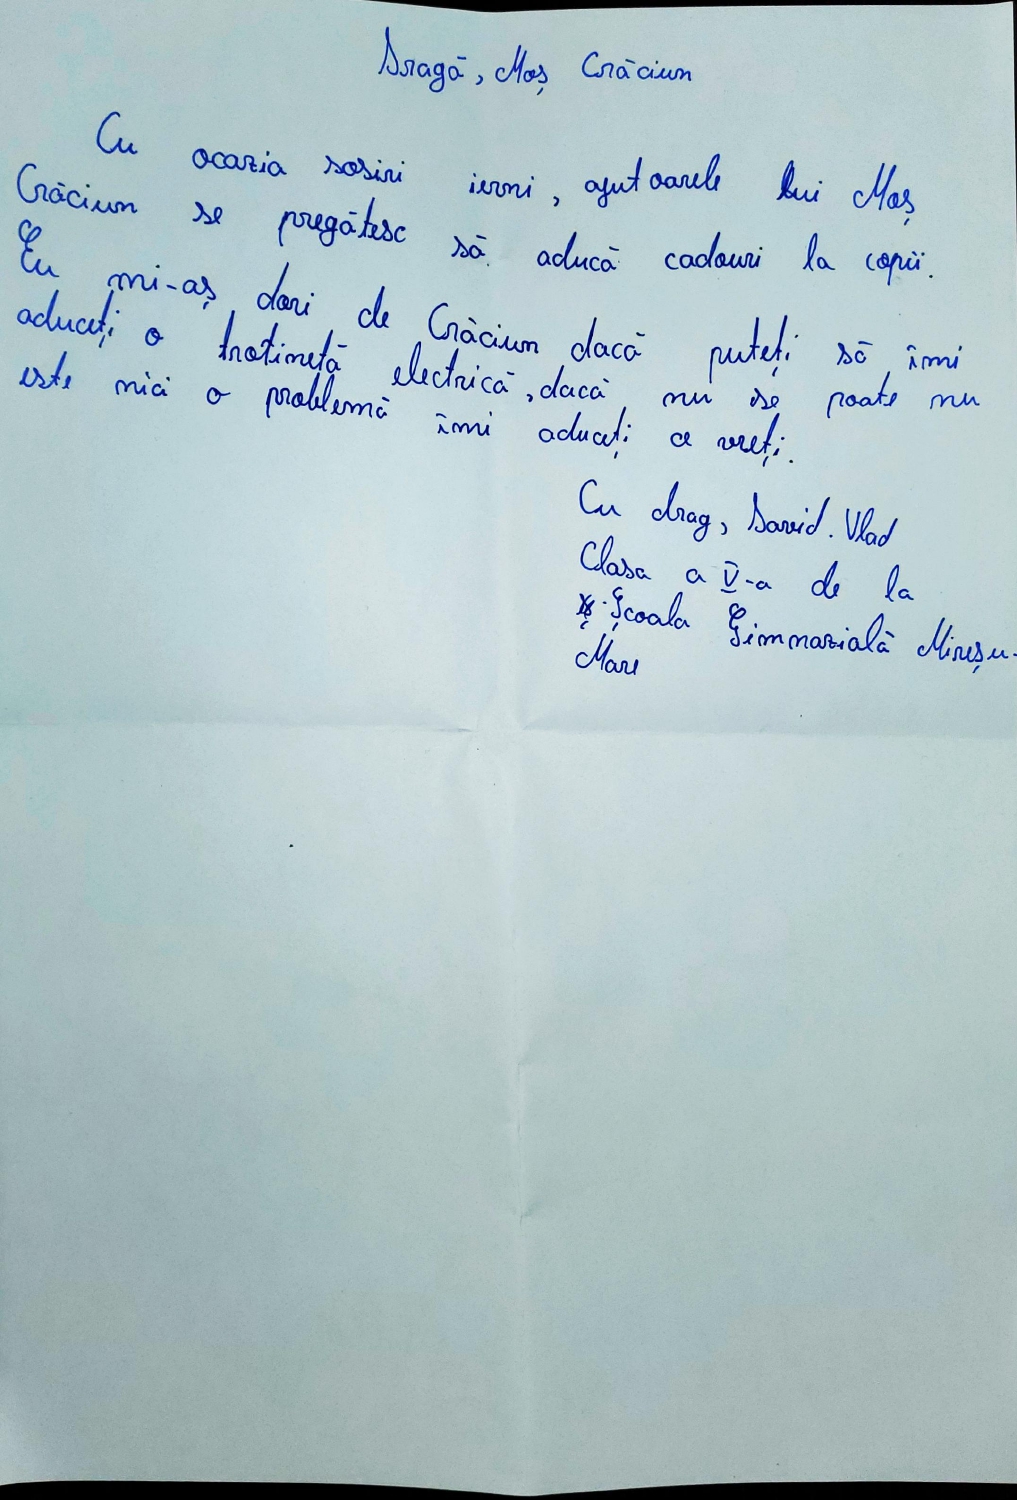 Dragă, Moș Crăciun
Cu ocazia sosiri ierni, ajutoarele lui Moș
Crăciun se pregătesc să aducă cadouri la copii.
Eu mi-aș dori de Crăciun dacă puteți să îmi
aduceți o trotinetă electrică, dacă nu se poate nu
este nici o problemă îmi aduceți ce vreți.
Cu drag, David. Vlad
Clasa a V-a de la
Școala Gimnazială Mireșu-
Mare